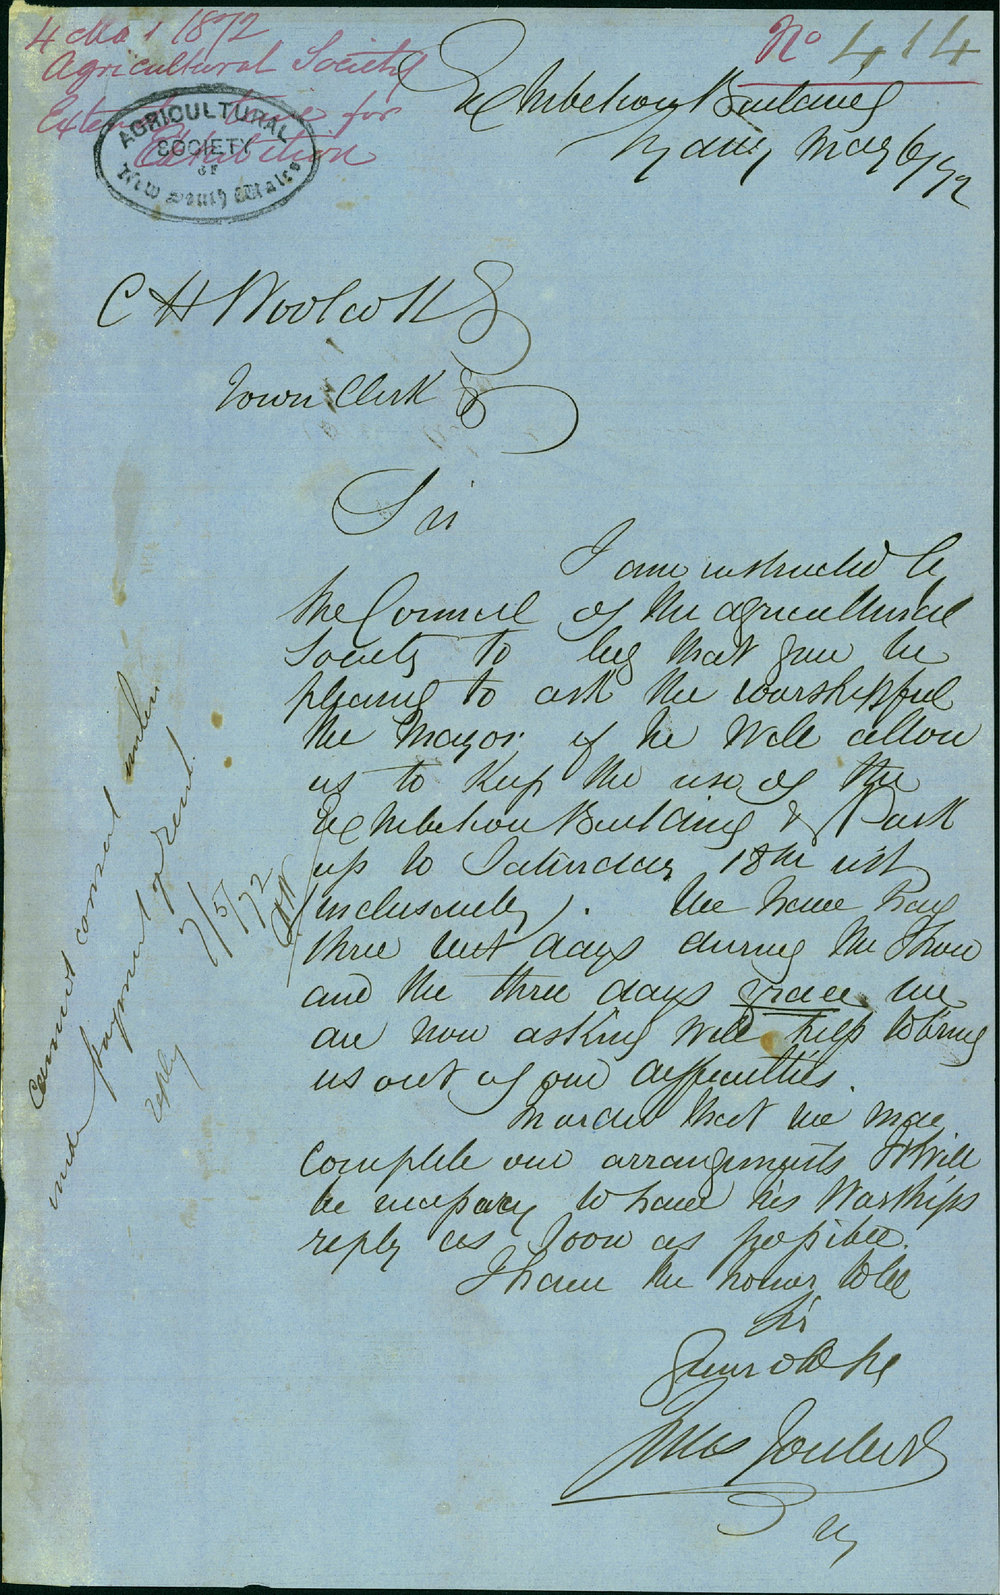 4 Ma 1872
Agricultural Society
Extend time for
Exhibition
No 414
AGRICULTURAL
SOCIETY
OF
New South Wales
Exhibition Building
Sydney May 6/72
C H Woolcott
Town Clerk
Sir
I am instructed by
the Council of the Agricultural
Society to beg that you be
pleased to ask the worshipful
the Mayor if he will allow
us to keep the use of the
Exhibition Building & Park
up to Saturday 18th
inclusively. We have had
three wet days during the Show
and the three days grace we
are now asking will help to bring
us out of our difficulties.
In order that we may
complete our arrangements it will
be necessary to have his Worships
reply as soon as possible.
I have the honor to be
Sir
Your
Jules Joubert
Sy
Cannot consent unless
under payment of rent.
reply
7/5/72